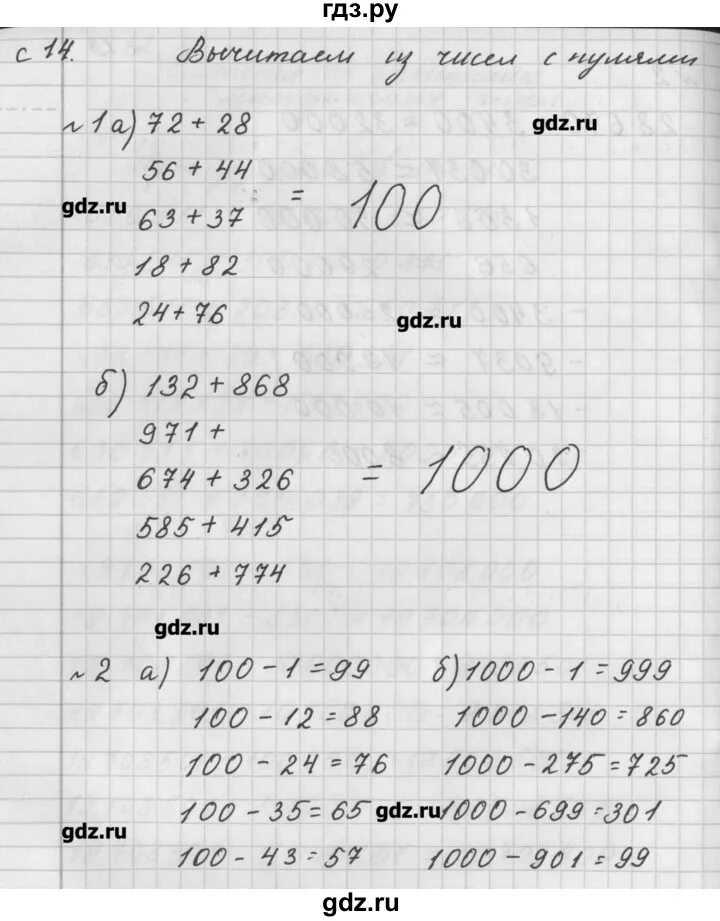 гдз.ру
с 14. Вычитаем из чисел с нулями
№1 а) 72 + 28
gdz.ru
56 + 44
gdz.ru
63 + 37
= 100
18 + 82
24 + 76
gdz.ru
б) 132 + 868
971 +
674 + 326
= 1000
585 + 415
226 + 774
gdz.ru
№2 а) 100 - 1 = 99 б) 1000 - 1 = 999
100 - 12 = 88 1000 - 140 = 860
100 - 24 = 76 1000 - 275 = 725
100 - 35 = 65 gdz.ru 1000 - 699 = 301
gdz.ru
100 - 43 = 57 1000 - 901 = 99
gdz.ru